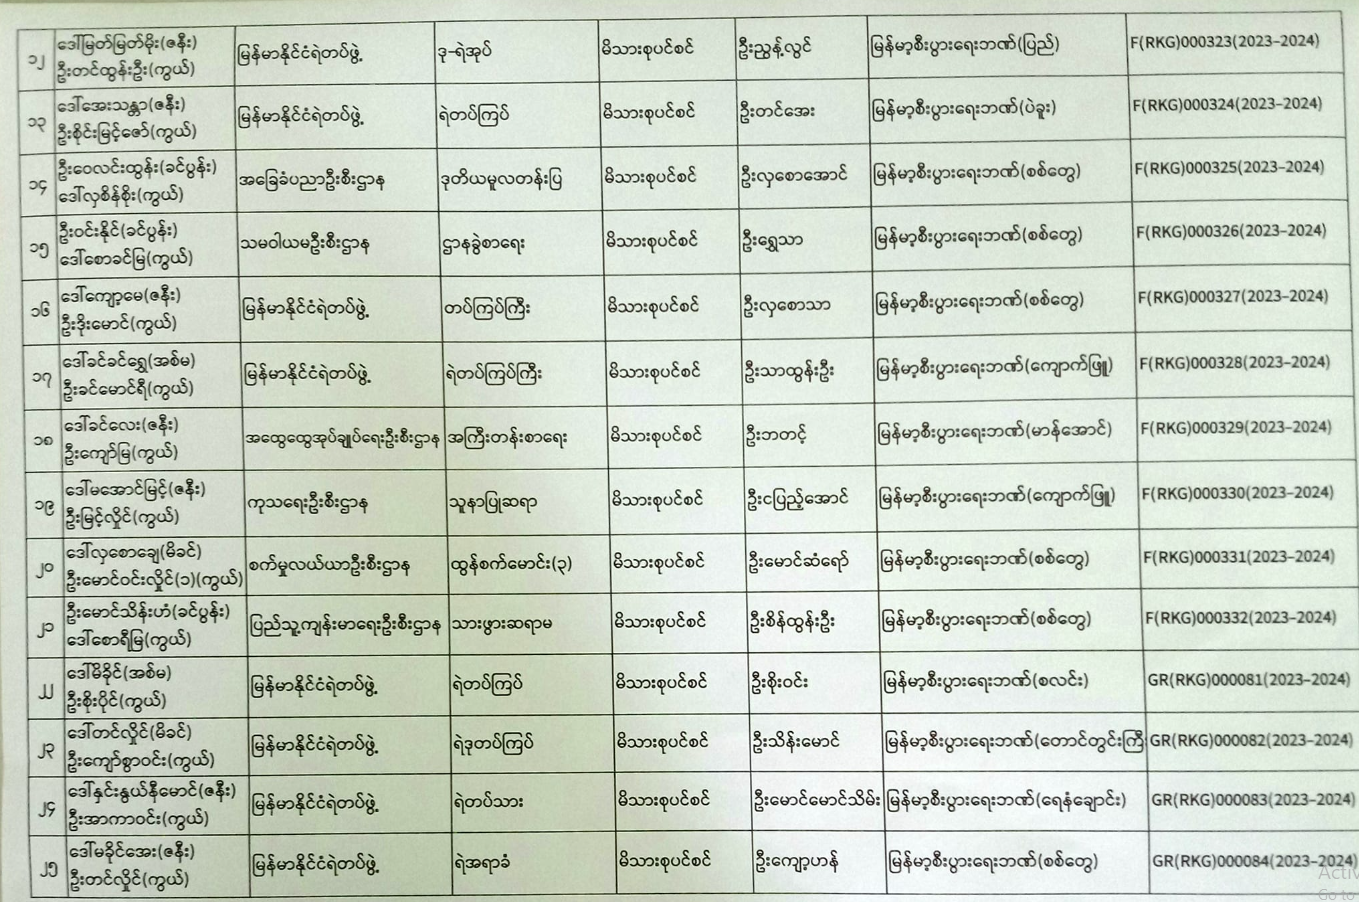 ၁၂ ဒေါ်မြတ်မြတ်မိုး(ဇနီး) ဦးတင်ထွန်းဦး(ကွယ်) မြန်မာနိုင်ငံရဲတပ်ဖွဲ့ ဒု-ရဲအုပ် မိသားစုပင်စင် ဦးညွန့်လွင် မြန်မာ့စီးပွားရေးဘဏ်(ပြည်) F(RKG)000323(2023-2024)
၁၃ ဒေါ်အေးသန္တာ(ဇနီး) ဦးစိုင်းမြင့်ဇော်(ကွယ်) မြန်မာနိုင်ငံရဲတပ်ဖွဲ့ ရဲတပ်ကြပ် မိသားစုပင်စင် ဦးတင်အေး မြန်မာ့စီးပွားရေးဘဏ်(ပဲခူး) F(RKG)000324(2023-2024)
၁၄ ဦးဝေလင်းထွန်း(ခင်ပွန်း) ဒေါ်လှစိန်စိုး(ကွယ်) အခြေခံပညာဦးစီးဌာန ဒုတိယမူလတန်းပြ မိသားစုပင်စင် ဦးလှစောအောင် မြန်မာ့စီးပွားရေးဘဏ်(စစ်တွေ) F(RKG)000325(2023-2024)
၁၅ ဦးဝင်းနိုင်(ခင်ပွန်း) ဒေါ်စောခင်မြ(ကွယ်) သမဝါယမဦးစီးဌာန ဌာနခွဲစာရေး မိသားစုပင်စင် ဦးရွှေသာ မြန်မာ့စီးပွားရေးဘဏ်(စစ်တွေ) F(RKG)000326(2023-2024)
၁၆ ဒေါ်ကျော့မေ(ဇနီး) ဦးဒိုးမောင်(ကွယ်) မြန်မာနိုင်ငံရဲတပ်ဖွဲ့ တပ်ကြပ်ကြီး မိသားစုပင်စင် ဦးလှစောသာ မြန်မာ့စီးပွားရေးဘဏ်(စစ်တွေ) F(RKG)000327(2023-2024)
၁၇ ဒေါ်ခင်ခင်ရွှေ(အစ်မ) ဦးခင်မောင်ရီ(ကွယ်) မြန်မာနိုင်ငံရဲတပ်ဖွဲ့ ရဲတပ်ကြပ်ကြီး မိသားစုပင်စင် ဦးသာထွန်းဦး မြန်မာ့စီးပွားရေးဘဏ်(ကျောက်ဖြူ) F(RKG)000328(2023-2024)
၁၈ ဒေါ်ခင်လေး(ဇနီး) ဦးကျော်မြ(ကွယ်) အထွေထွေအုပ်ချုပ်ရေးဦးစီးဌာန အကြီးတန်းစာရေး မိသားစုပင်စင် ဦးဘတင့် မြန်မာ့စီးပွားရေးဘဏ်(မာန်အောင်) F(RKG)000329(2023-2024)
၁၉ ဒေါ်မအောင်မြင့်(ဇနီး) ဦးမြင့်လှိုင်(ကွယ်) ကုသရေးဦးစီးဌာန သူနာပြုဆရာ မိသားစုပင်စင် ဦးငပြည့်အောင် မြန်မာ့စီးပွားရေးဘဏ်(ကျောက်ဖြူ) F(RKG)000330(2023-2024)
၂၀ ဒေါ်လှစောချေ(မိခင်) ဦးမောင်ဝင်းလှိုင်(၁)(ကွယ်) စက်မှုလယ်ယာဦးစီးဌာန ထွန်စက်မောင်း(၃) မိသားစုပင်စင် ဦးမောင်ဆံရော် မြန်မာ့စီးပွားရေးဘဏ်(စစ်တွေ) F(RKG)000331(2023-2024)
၂၁ ဦးမောင်သိန်းဟံ(ခင်ပွန်း) ဒေါ်စောရီမြ(ကွယ်) ပြည်သူ့ကျန်းမာရေးဦးစီးဌာန သားဖွားဆရာမ မိသားစုပင်စင် ဦးစိန်ထွန်းဦး မြန်မာ့စီးပွားရေးဘဏ်(စစ်တွေ) F(RKG)000332(2023-2024)
၂၂ ဒေါ်မိခိုင်(အစ်မ) ဦးစိုးပိုင်(ကွယ်) မြန်မာနိုင်ငံရဲတပ်ဖွဲ့ ရဲတပ်ကြပ် မိသားစုပင်စင် ဦးစိုးဝင်း မြန်မာ့စီးပွားရေးဘဏ်(စလင်း) GR(RKG)000081(2023-2024)
၂၃ ဒေါ်တင်လှိုင်(မိခင်) ဦးကျော်စွာဝင်း(ကွယ်) မြန်မာနိုင်ငံရဲတပ်ဖွဲ့ ရဲဒုတပ်ကြပ် မိသားစုပင်စင် ဦးသိန်းမောင် မြန်မာ့စီးပွားရေးဘဏ်(တောင်တွင်းကြီ GR(RKG)000082(2023-2024)
၂၄ ဒေါ်နှင်းနွယ်နီမောင်(ဇနီး) ဦးအာကာဝင်း(ကွယ်) မြန်မာနိုင်ငံရဲတပ်ဖွဲ့ ရဲတပ်သား မိသားစုပင်စင် ဦးမောင်မောင်သိမ်း မြန်မာ့စီးပွားရေးဘဏ်(ရေနံချောင်း) GR(RKG)000083(2023-2024)
၂၅ ဒေါ်မခိုင်အေး(ဇနီး) ဦးတင်လှိုင်(ကွယ်) မြန်မာနိုင်ငံရဲတပ်ဖွဲ့ ရဲအရာခံ မိသားစုပင်စင် ဦးကျော့ဟန် မြန်မာ့စီးပွားရေးဘဏ်(စစ်တွေ) GR(RKG)000084(2023-2024)
Activ
Go to